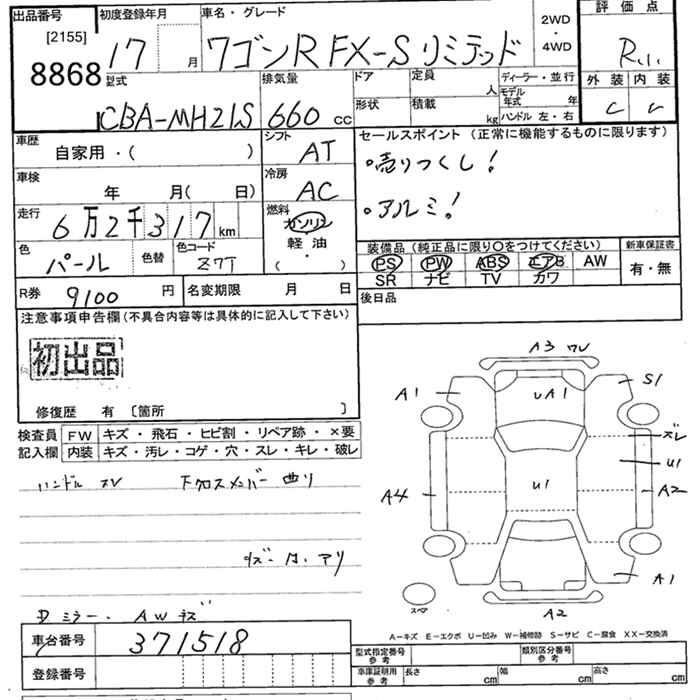 出品番号 初度登録年月 車名・グレード 2WD・4WD 評価点
[2155] 17 月 ワゴンR FX-Sリミテッド R
8868
型式 排気量 ドア 定員 人 ディーラー・並行 外装 内装
CBA-MH21S 660 cc 形状 積載 kg モデル年式 年 C C
ハンドル 左・右
車歴 自家用・( ) シフト AT セールスポイント(正常に機能するものに限ります)
・売りつくし!
車検 年 月( 日) 冷房 AC
・アルミ!
走行 6万2千317 km 燃料 ガソリン 軽油 ( )
色 パール 色替 色コード Z7T
装備品(純正品に限り○をつけてください) 新車保証書
PS PW ABS エアB AW 有・無
SR ナビ TV カワ
R券 9100 円 名変期限 月 日 後日品
注意事項申告欄(不具合内容等は具体的に記入して下さい)
初出品
修復歴 有 [箇所 ]
検査員記入欄 FW キズ・飛石・ヒビ割・リペア跡・×要
内装 キズ・汚レ・コゲ・穴・スレ・キレ・破レ
ハンドル スレ 下クロスメンバー 曲り
アリ
ミラー・AWキズ
A3 ワレ
A1 UA1 S1
ズレ
U1
A4 U1 A2
A1
スペア A2
A-キズ E-エクボ U-凹み W-補修跡 S-サビ C-腐食 XX-交換済
車台番号 371518
型式指定番号 参考 類別区分番号 参考
登録番号 車庫証明用 参考 長さ cm 幅 cm 高さ cm